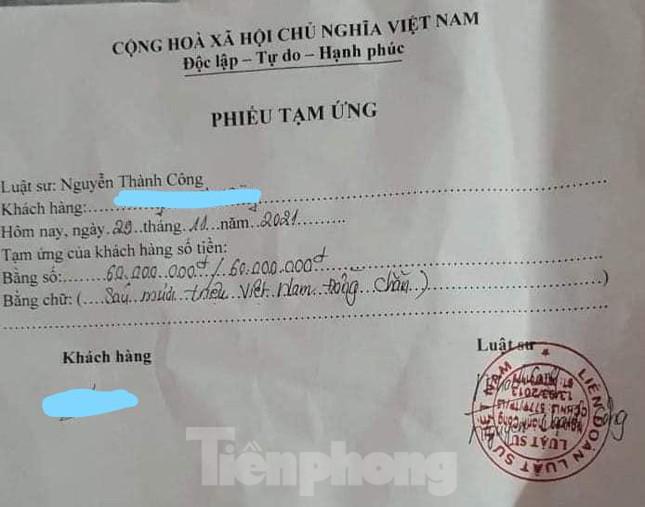 CỘNG HOÀ XÃ HỘI CHỦ NGHĨA VIỆT NAM
Độc lập – Tự do – Hạnh phúc
PHIẾU TẠM ỨNG
Luật sư: Nguyễn Thành Công
Khách hàng:
Hôm nay, ngày 29 tháng 11 năm 2021
Tạm ứng của khách hàng số tiền:
Bằng số: 60.000.000đ / 60.000.000đ
Bằng chữ: (Sáu mươi triệu Việt Nam Đồng chẵn)
Khách hàng
Luật sư
LIÊN ĐOÀN LUẬT SƯ VIỆT NAM
LUẬT SƯ
Tiềnphong